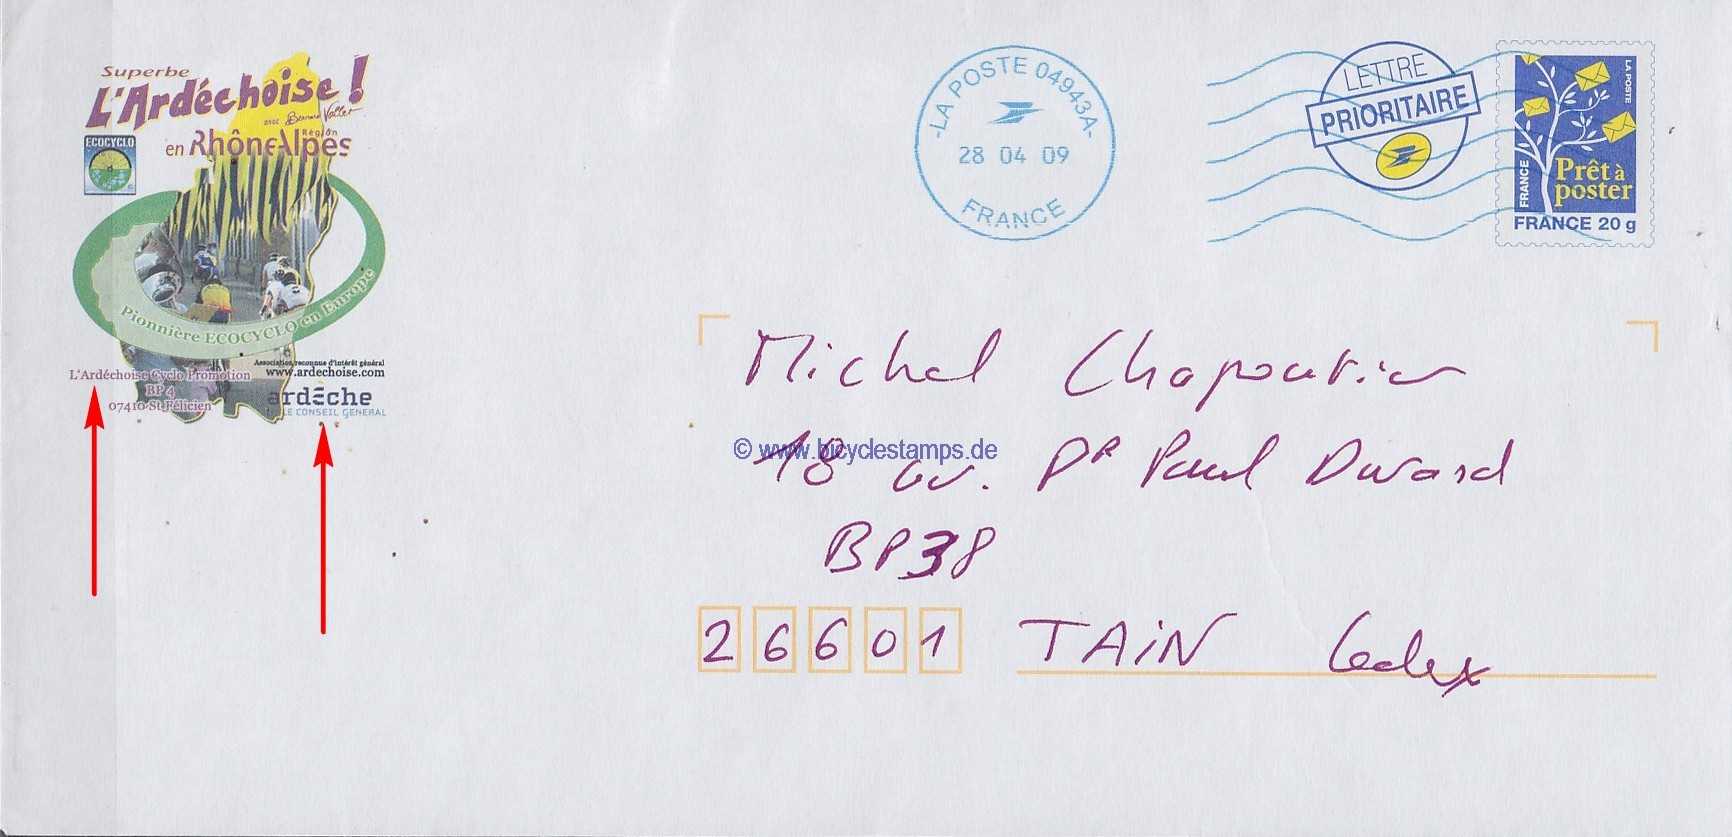 Superbe
L'Ardéchoise !
avec Bernard Vallet
en RhôneAlpes Région
ECOCYCLO
Pionnière ECOCYCLO en Europe
Association reconnue d'intérêt général
www.ardechoise.com
L'Ardéchoise Cyclo Promotion
BP 4
07410 St Félicien
ardèche
LE CONSEIL GENERAL
LA POSTE 04943A
28 04 09
FRANCE
LETTRE
PRIORITAIRE
LA POSTE
FRANCE
Prêt à
poster
FRANCE 20 g
Michel Chapoutier
© www.bicyclestamps.de
18 av. Dr Paul Durand
BP38
26601 TAiN Cedex